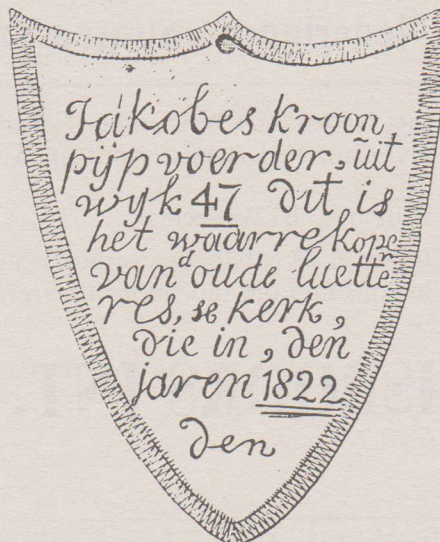 Jakobes kroon,
pijp voerder, uit
wyk 47 dit is
het waarre kope
van d oude luette
res, se kerk,
die in, den
jaren 1822
den